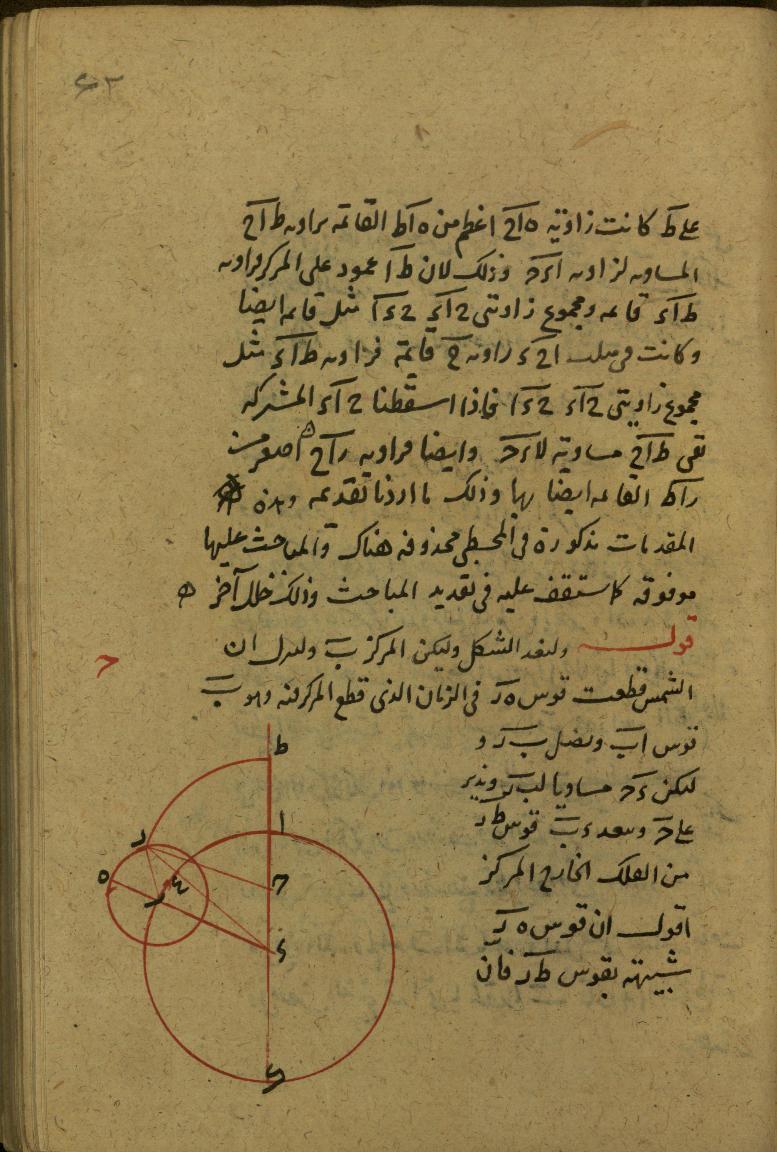 ٤٢
على ط كانت زاوية ه ا ح اعظم من ه ا ط القائمة بزاوية ط ا ح
المساوية لزاوية ا ء ح وذلك لان ط ا عمود على المركز فزاوية
ط ا ء قائمة ومجموع زاوتي ح ا ء ح ء ا مثل قائمة ايضا
وكانت في مثلث ا ح ء زاوية ح قائمة فزاوية ط ا ء مثل
مجموع زاويتي ح ا ء ح ء ا فاذا اسقطنا ح ا ء المشتركة
بقى ط ا ح مساوية لا ء ح وايضا فزاوية ر ا ح اصغر من
ر ا ط القائمة ايضا بها وذلك ما اردنا تقدمه وهذه
المقدمات مذكورة في المجسطي محذوفة هناك والمباحث عليها
موقوفة كما ستقف عليه في تقديد المباحث وذلك خلل آخر ه
قوله ولنعد الشكل وليكن المركز ب ولينزل ان
الشمس قطعت قوس ه ر في الزمان الذي قطع المركز فيه وهو ب
قوس ا ب ونصل ب ر و
ليكن ء ح مساويا لب ر وندير
على ح وببعد ء ب قوس ط ر
من الفلك الخارج المركز
اقول ان قوس ه ر
شبيهة بقوس ط ر فان
ط
ا
ر
ه
ب
ح
ء